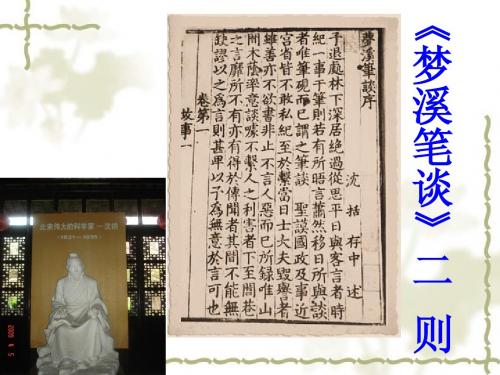 《梦溪笔谈》二则
夢溪筆談序
沈括存中述
予退處林下深居絶過從思平日與客言者時
紀一事于筆則若有所晤言蕭然移日所與談
者唯筆硯而已謂之筆談 聖謨國政及事近
宮省皆不敢私紀至於繫當日士大夫毀譽者
雖善亦不欲書非止不言人惡而已所録唯山
間木蔭率意談噱不繫人之利害者下至閭巷
之言靡所不有亦有得於傳聞者其間不能無
缺謬以之為言則甚卑以予為無意於言可也
卷第一
故事一
北宋伟大的科学家—沈括